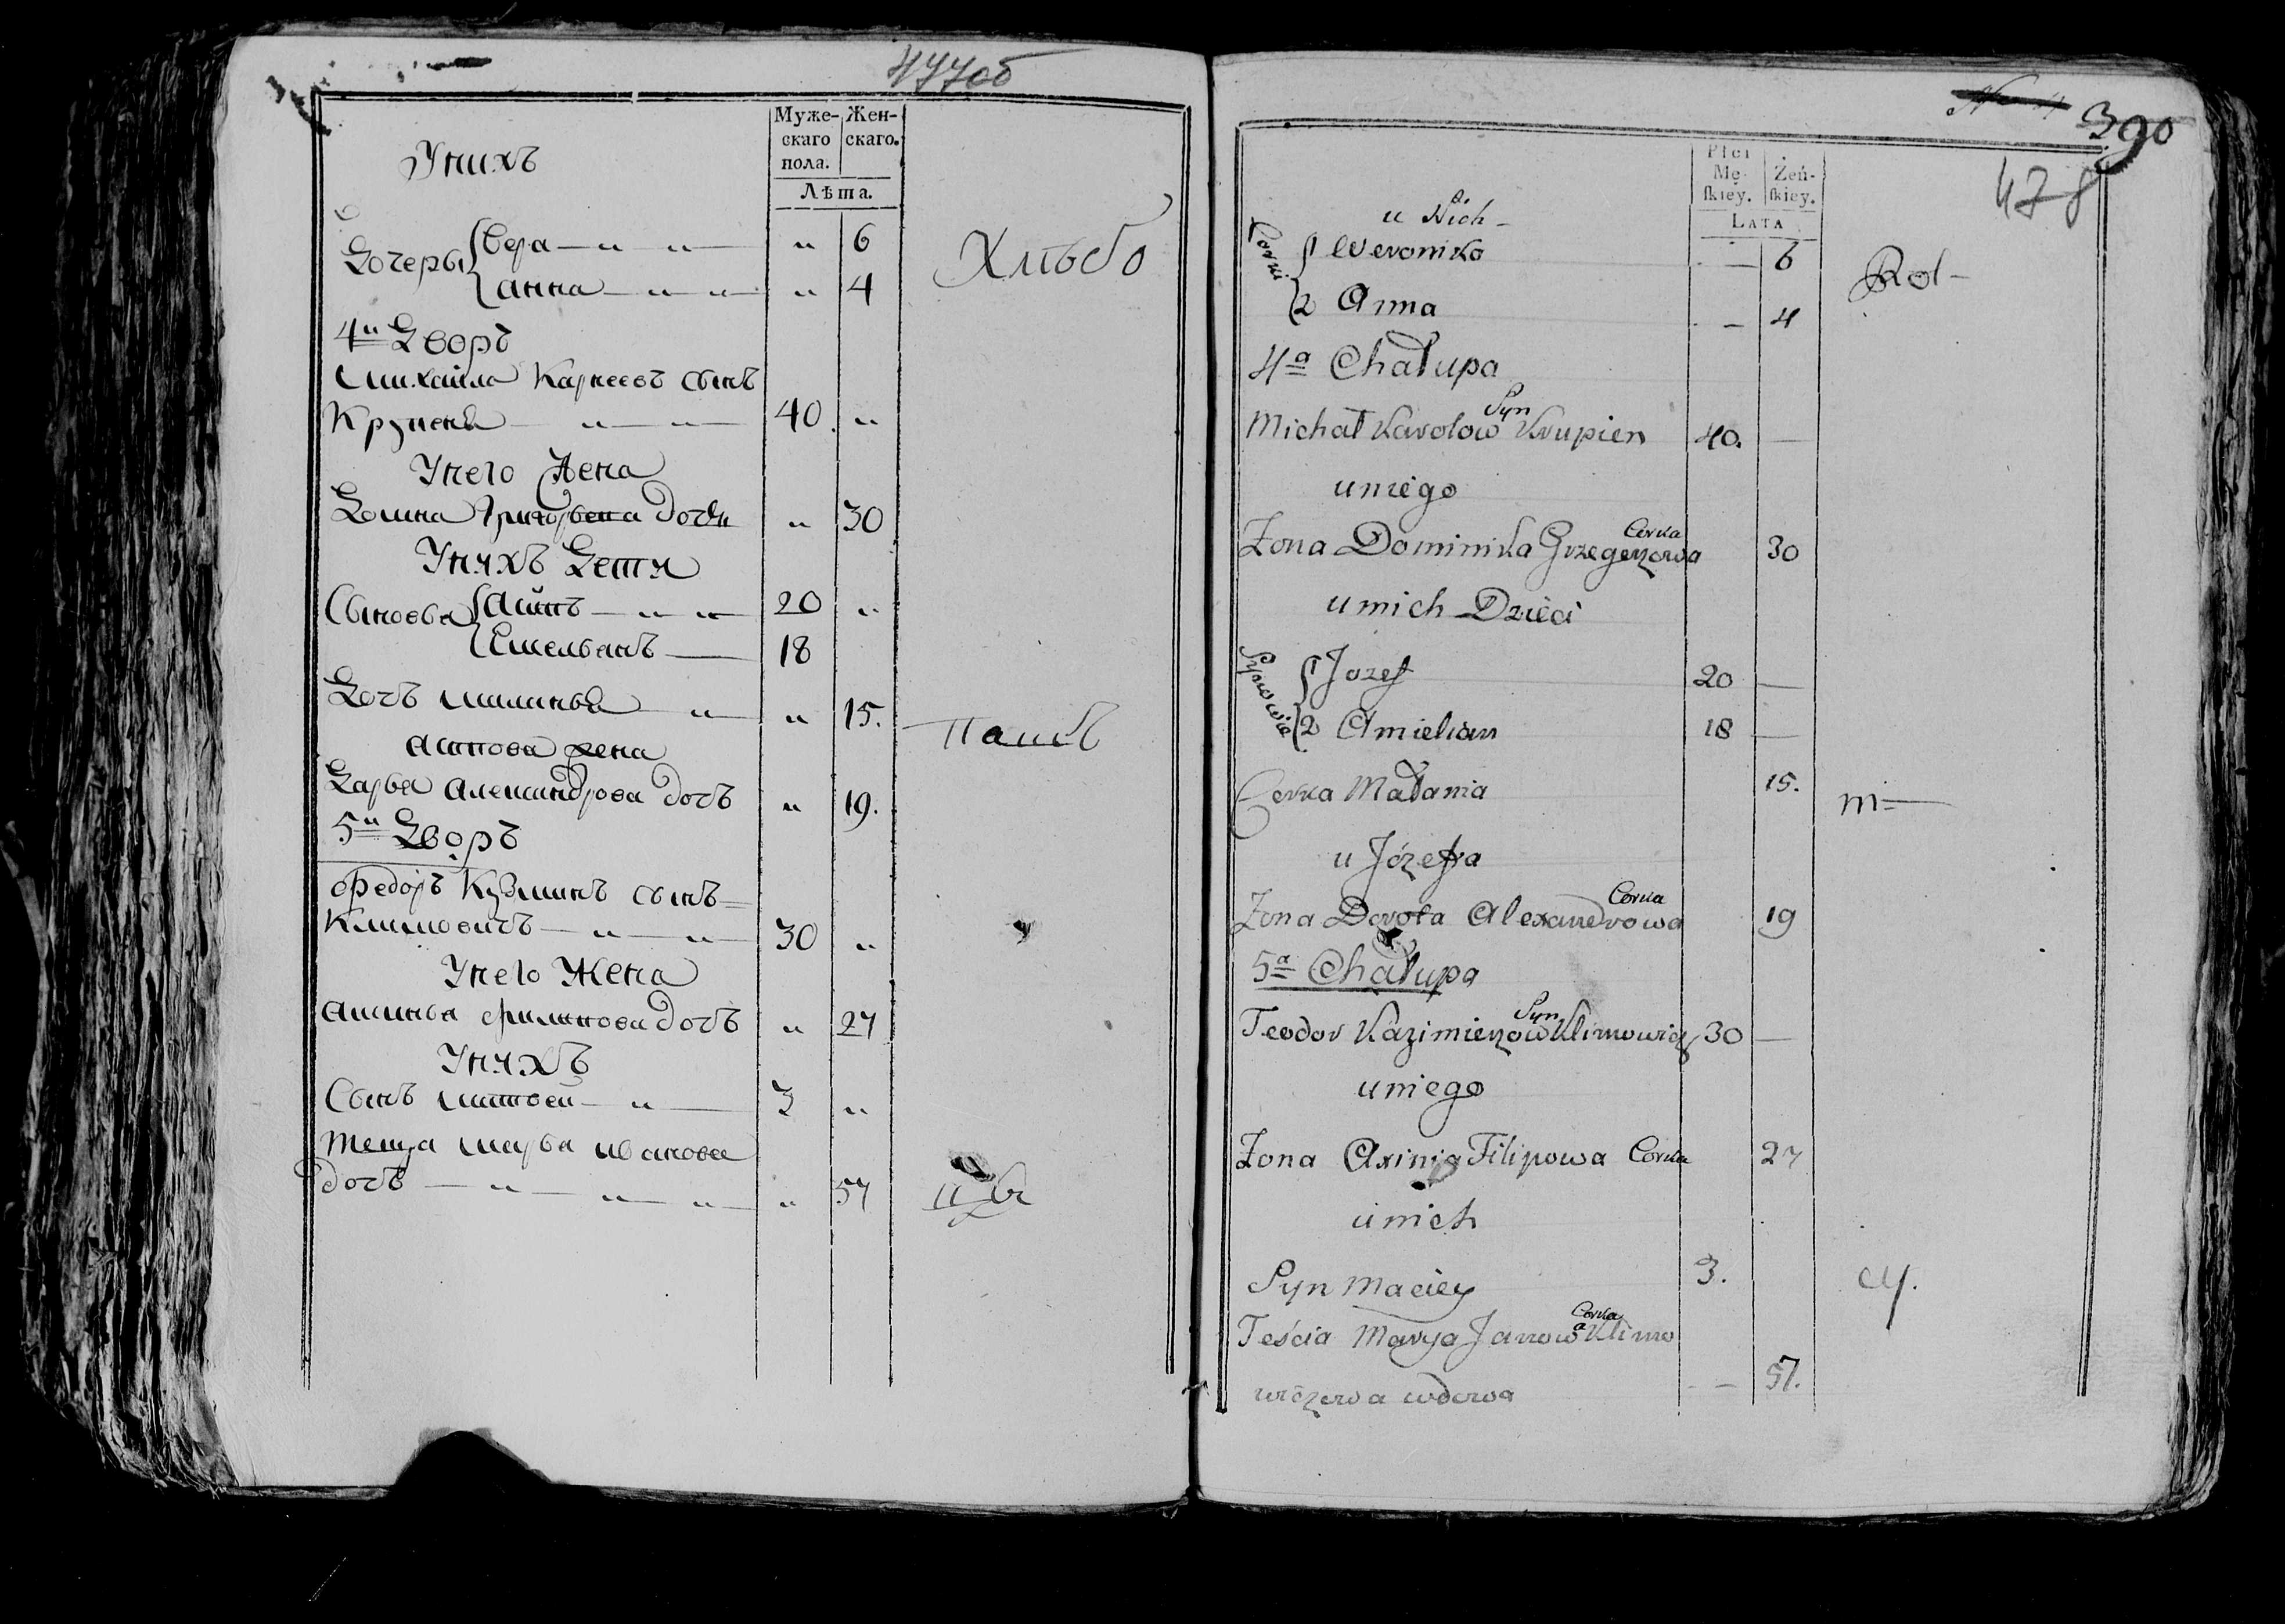 477об
Унихъ
Муже-
скаго
пола.
Жен-
скаго.
Лѣта.
Дочеры
Вера — " " — " 6
анна — " " — " 4
Хлѣбо
4й Дворъ
Михайла Карпеевъ сынъ
Крупеня — " — 40. "
Унего Жена
Домна Григорьева дочь " 30
Унихъ Дети
Сыновья
Асипъ — " " 20 "
Емельянъ — 18
Дочь Маланья " " 15.
Пашъ
Асипова жена
Дарья Александрова дочь " 19.
5й Дворъ
Федоръ Кузминъ сынъ
Климовичъ — " — " 30 "
Унего Жена
Аксинья Филипова дочъ " 27
Унихъ
Сынъ Матвей — " — 3 "
Теща Марья Иванова
дочъ — " — " — " " 57
390
478
Płci
Mę-
skiey.
Żeń-
skiey.
LATA
u Nich
Corki
1 Weronika — 6
2 Anna — 4
Rol-
4a Chałupa
Syn
Michał Karolow Krupien 40. —
uniego
Corka
Zona Dominika Grzegorzowa 30
unich Dzieci
Synowie
1 Jozef 20 —
2 Amielian 18 —
Corka Małania 15.
m—
u Józefa
Corka
Zona Dorota Alexandrowa 19
5a Chałupa
Syn
Teodor Kazimierzow Klimowicz 30 —
uniego
Zona Axinia Filipowa Corka 27
unich
Syn Maciey 3.
cy.
Corka
Teścia Marya Janowa Klimo
wiczowa wdowa — 57.